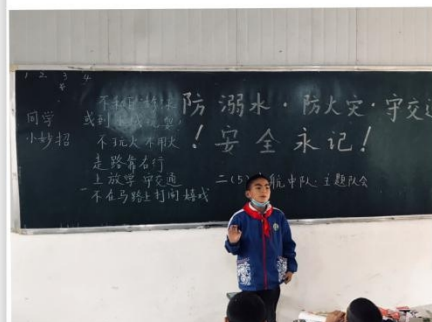 1 2 3 4
防溺水·防火灾·守交通
!安全永记!
同学
小妙招
不玩火 不用火
走路靠右行
上放学 守交通
不在马路上打闹嬉戏
二(5) 航中队·主题队会